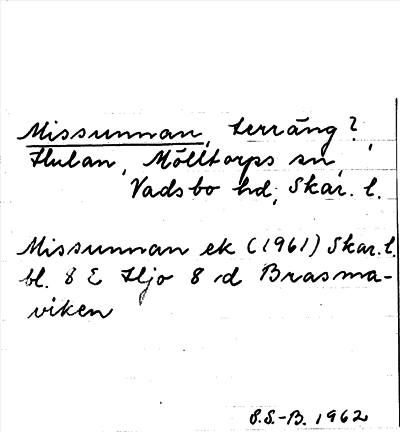 Missunnan, terräng?,
Hulan, Mölltorps sn,
Vadsbo hd, Skar. l.
Missunnan ek (1961) Skar. l.
bl. 8 E Hjo 8 d Brasma-
viken
S.-B. 1962